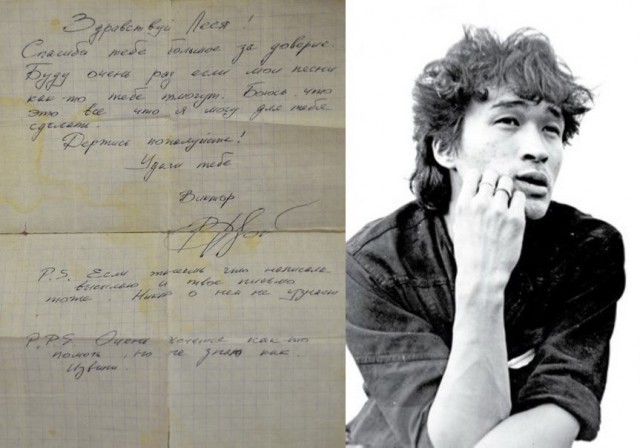 Здравствуй Леся!
Спасибо тебе большое за доверие.
Буду очень рад если мои песни
как-то тебе помогут. Боюсь, что
это все что я могу для тебя
сделать.
Держись пожалуйста!
Удачи тебе
Виктор
P.S. Если
высылаю и твое письмо
тоже. Никто о нем не узнает
P.P.S. Очень хочется как-то
помочь, но не знаю как.
Извини.